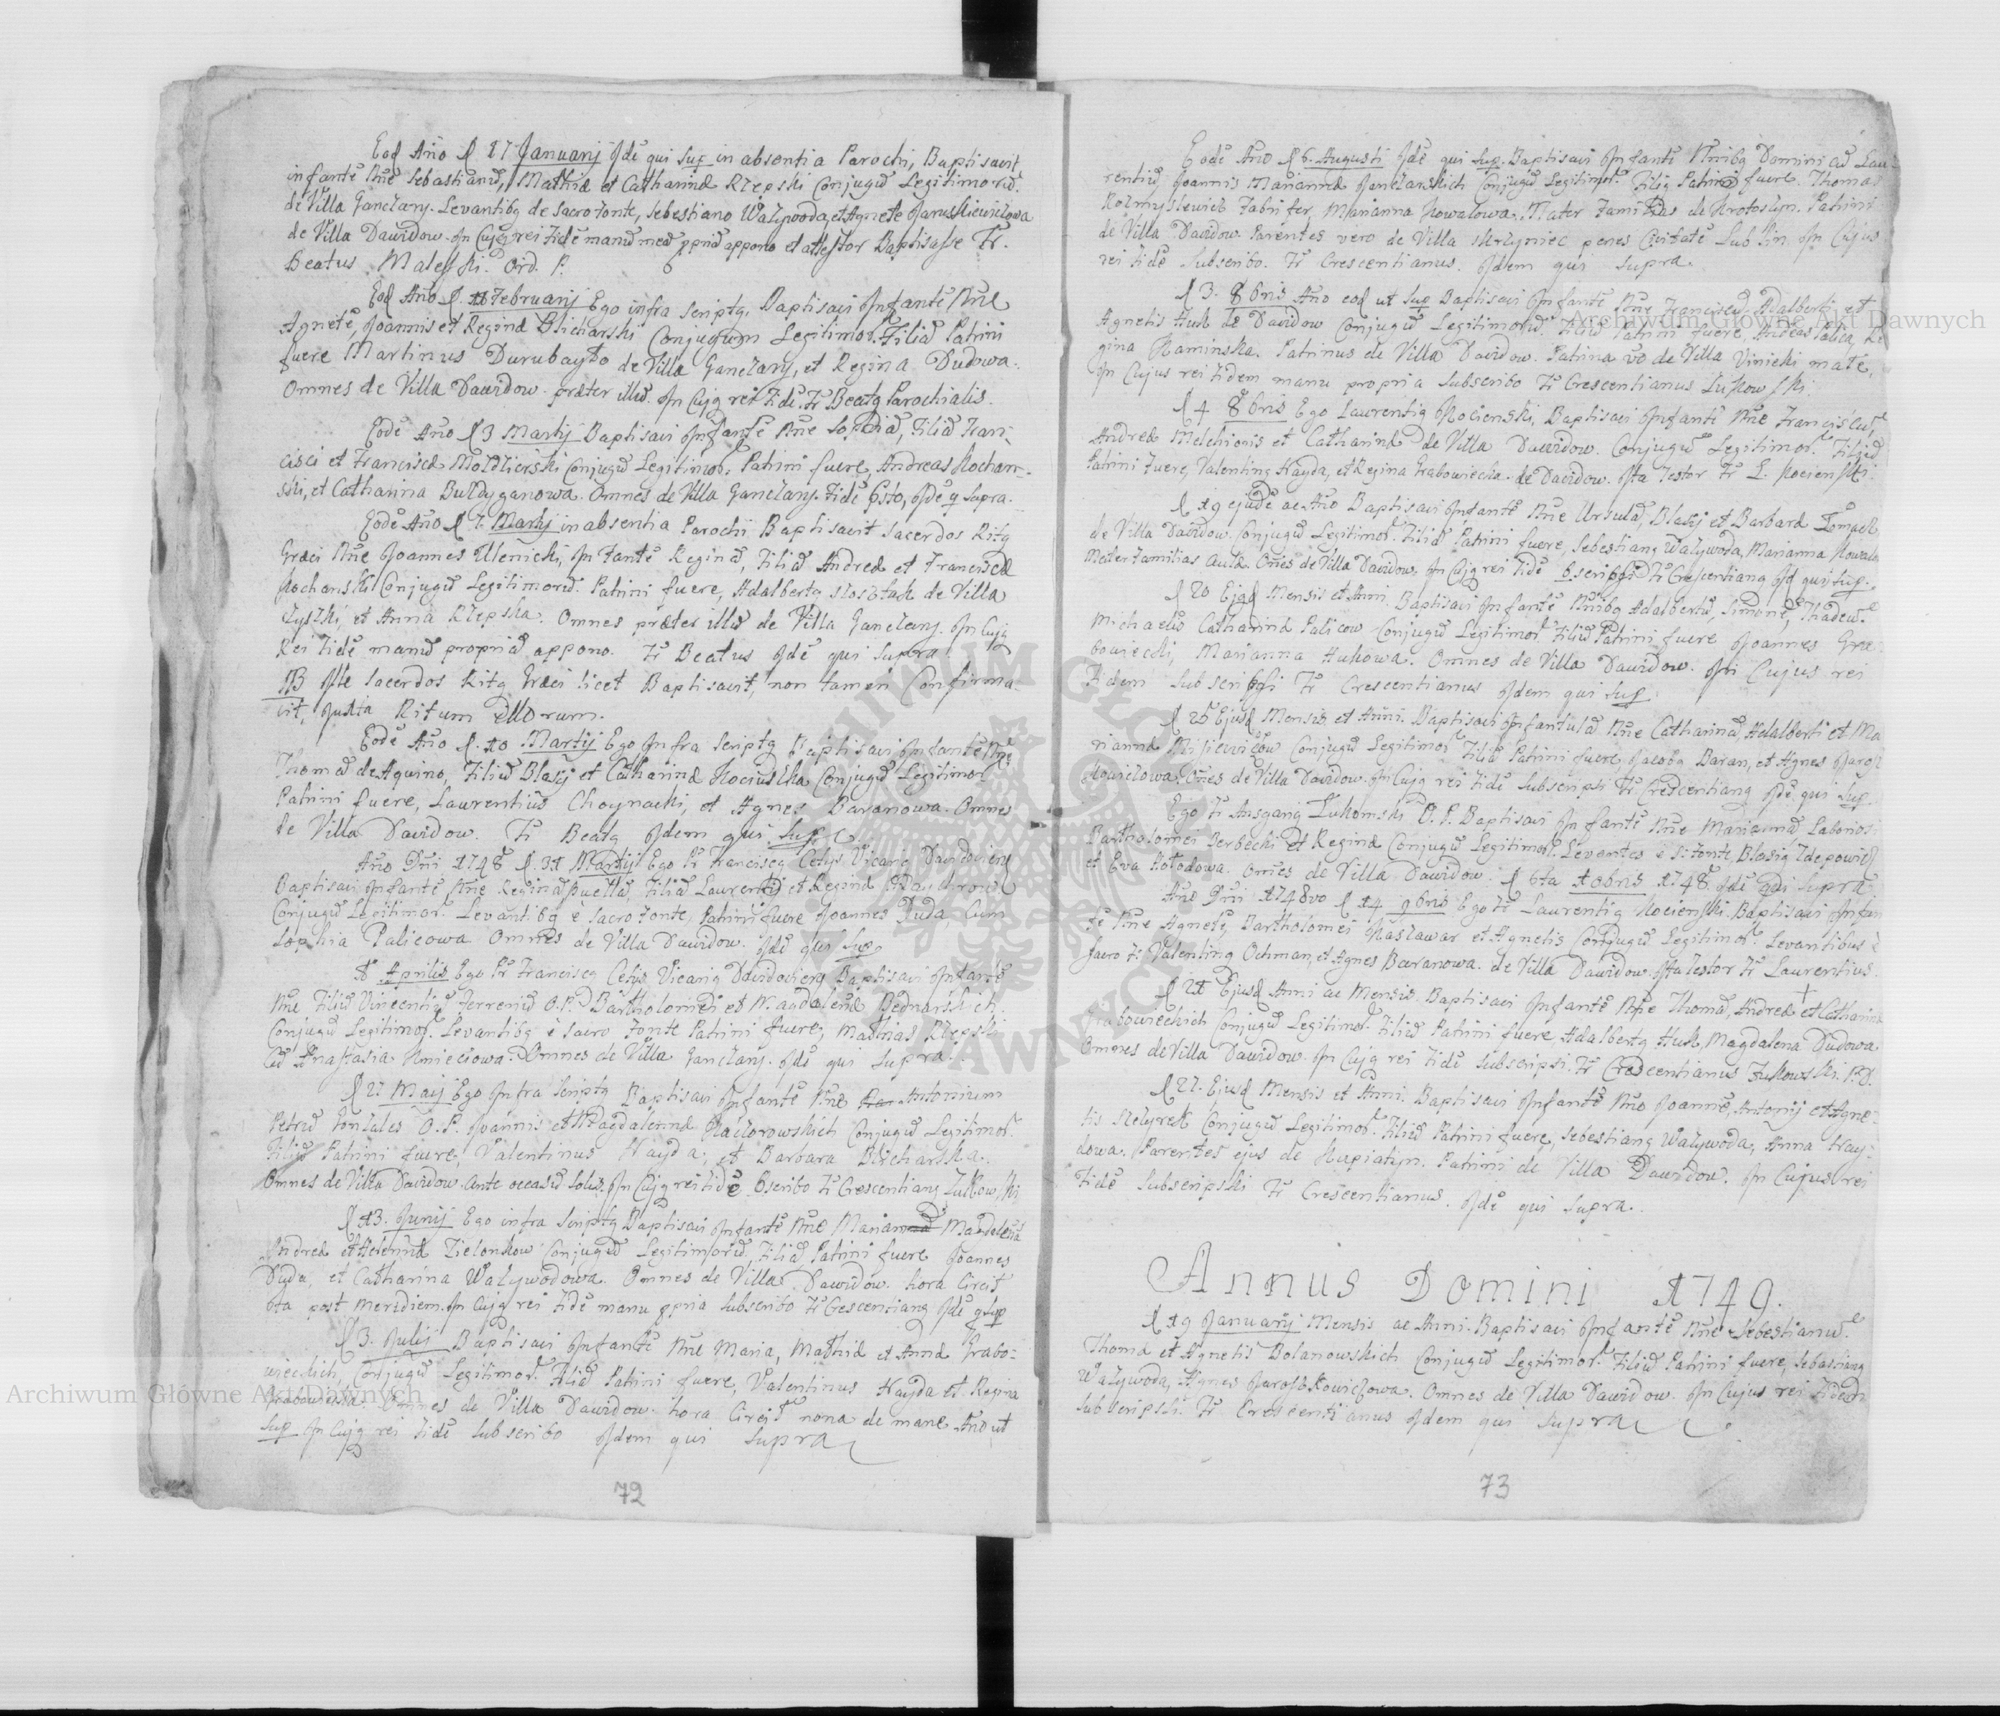 Eod Año d 17 Januarij Jdē qui sup in absentia Parochi, Baptisavit
infantē Nnē Sebastianū, Mathiæ et Catharinæ Rzepski Conjugū Legitimorū.
de Villa Ganczary. Levantibq de Sacro fonte, Sebestiano Walywoda, et Agnete
de Villa Dawidow. Jn Cujq rei fidē manū meā ppriā appono et attestor Baptisasse Fr.
Beatus Malesski. Ord. P.
Eod Año d. 11 Februarij Ego infra scriptq. Baptisavi Jnfantē Nnē
Agnetē, Joannis et Reginæ Blicharski Conjugum Legitimor. Filiā Patrini
fuere Martinus Durubayło de Villa Ganczary, et Regina Dudowa.
Omnes de Villa Dawidow. præter illū. Jn Cujq rei fidē. Fr Beatq Parochialis.
Eodē Año d 3 Martij Baptisavi Jnfantē Nne Sophiā, Filiā Fran-
cisci et Franciscæ Conjugū Legitimor. Patrini fuere Andreas Kochan-
ski, et Catharina Buldyganowa. Omnes de Villa Ganczary. Jdē q supra.
Eodē Año d 7 Martij in absentia Parochi Baptisavit Sacerdos Ritq
Græci Nne Joannes Ilenicki, Jnfantē Reginā, Filiā Andreæ et Franciscæ
Kochanski Conjugū Legitimorū. Patrini fuere, Adalbertq de Villa
et Anna Rzepska. Omnes præter illū de Villa Ganczary. Jn Cujq
Rei fidē manū propriā appono. Fr Beatus Jdē qui supra
NB Jlle Sacerdos Ritq Græci licet Baptisavit, non tamen Confirma-
vit, juxta Ritum Illorum.
Eodē Año d. 10 Martij Ego Jnfra scriptq Baptisavi Jnfantē Nnē
Thomā de Aquino, Filiū Blasij et Catharinæ Kociuszka Conjugū Legitimor
Patrini fuere, Laurentius Choynacki, et Agnes Baranowa. Omnes
de Villa Dawidow. Fr Beatq Jdem qui Supr
Año Dñi 1748 d. 31 Martij Ego Fr Franciscq Vicariq
Baptisavi Jnfantē Nne Reginā puellā, Filiā Laurentij et Reginæ
Conjugū Legitimor. Levantibq è Sacro fonte, Patrini fuere Joannes Duda, Cum
Sophia Palicowa. Omnes de Villa Dawidow. Jdē qui Sup.
Aprilis Ego Fr Franciscq Vicariq Baptisavi Jnfantē
Nnē Filiū Vincentiū Ferreriū O.P. Bartholomei et Magdalenæ Bednarskich
Conjugū Legitimor. Levantibq è Sacro fonte Patrini fuere, Mathias Rzepski
Omnes de Villa Ganczary. Jdē qui supra.
d 27 Maij Ego Jnfra scriptq Baptisavi Jnfantē Nnē Antonium
Petrū Gonzales O.P. Joannis et Magdalenæ Conjugū Legitimor.
Filiū Patrini fuere, Valentinus Hayda, et Barbara Blicharska.
Omnes de Villa Dawidow. ante occasū solis. Jn Cujq rei fidē Fr Crescentianq
d 13. Junij Ego infra scriptq Baptisavi Jnfantē Nnē Magdalenā
Andreæ et Helenæ Zielonkow Conjugū Legitimorū. Filiā Patrini fuere Joannes
Duda, et Catharina Walywodowa. Omnes de Villa Dawidow. hora Circit
6ta post meridiem. Jn Cujq rei fidē manu ppria subscribo Fr Crescentianq Jdē q sup
d 3. Julij Baptisavi Jnfantē Nnē Maria, Mathiæ et Annæ Grabo-
wieckich, Conjugū Legitimor. Filiā Patrini fuere, Valentinus Hayda et Regina
Grabowiecka. Omnes de Villa Dawidow. hora Circit nona de mane Año ut
sup Jn Cujq rei fidē subscribo Jdem qui supra
72
Eodē Año d 6. Augusti Jdē qui sup. Baptisavi Jnfantē Nnibq Dominicū Lau-
rentiū Joannis Mariannæ Conjugū Legitimor. Filiū Patrini fuere. Thomas
Marianna Kowalowa. Mater Familias de Krotoszyn. Patrini
de Villa Dawidow. Parentes vero de Villa penes Civitatē Lublin. Jn Cujus
rei fidē subscribo. Fr Crescentianus. Jdem qui supra.
d 3. 8bris Año eod ut sup Baptisavi Jnfantē Nnē Franciscū, Adalberti et
Agnetis Huk de Dawidow Conjugū Legitimorū. Filiū Patrini fuere, Andreas Palica, Re-
gina Kaminska. Patrinus de Villa Dawidow. Patrina vō de Villa Viniczki
Jn Cujus rei fidem manu propria subscribo Fr Crescentianus
d 4 8bris Ego Laurentiq Kocienski, Baptisavi Jnfantē Nnē Franciscū
Andreæ Melchionis et Catharinæ de Villa Dawidow. Conjugū Legitimor. Filiū
Patrini fuere, Valentinq Hayda, et Regina Grabowiecka. de Dawidow. Jta Testor Fr L. Kocienski.
d 19 ejudē ac Año Baptisavi Jnfantē Nnē Ursulā, Blasij et Barbaræ
de Villa Dawidow. Conjugū Legitimor. Filiā Patrini fuere, Sebestianq Walywoda, Marianna
Mater Familias Aulæ. Oñes de Villa Dawidow. Jn Cujq rei fidē Fr Crescentianq Jd qui sup.
d 20 Ejqd Mensis et Anni. Baptisavi Jnfantē Nnibq Adalbertū, Simonē, Thadeū.
Michaelis Catharinæ Palicow Conjugū Legitimor. Filiū Patrini fuere Joannes Gra-
bowiecki, Marianna Hukowa. Omnes de Villa Dawidow. Jn Cujus rei
Fidem subscripsi Fr Crescentianus Jdem qui sup.
d 25 Ejusd Mensis et Anni. Baptisavi Jnfantulā Nnē Catharinā, Adalberti et Ma-
riannæ Conjugū Legitimor Filiā Patrini fuere, Jacobq Baran, et Agnes
Oñes de Villa Dawidow. Jn Cujq rei fidē subscripsi Fr Crescentianq Jdē qui sup.
Ego Fr Ansganq Łukomski O.P. Baptisavi Jnfantē Nnē Mariannā Laborios
Bartholomei et Reginæ Conjugū Legitimor. Levantes è S. fonte, Blasiq
et Eva Hołodowa. Oñes de Villa Dawidow. d 6ta 10bris 1748. Jdē qui supra
Año Dñi 1748vo d 14 9bris Ego Fr Laurentiq Kocienski, Baptisavi Jnfan-
tē Nnē Agnetē, Bartholomei et Agnetis Conjugū Legitimor. Levantibus è
sacro fo Valentinq Ochman, et Agnes Baranowa. de Villa Dawidow. Jta Testor Fr Laurentius.
d 21 Ejusd Anni ac Mensis. Baptisavi Jnfantē Nnē Thomā, Andreæ et Catharinæ
Grabowieckich Conjugū Legitimor. Filiū Patrini fuere Adalbertq Huk, Magdalena Dudowa
Omnes de Villa Dawidow. Jn Cujq rei fidē subscripsi. Fr Crescentianus
d 27. Ejusd Mensis et Anni. Baptisavi Jnfantē Nnē Joannē, Antonij et Agne-
tis Conjugū Legitimor. Filiū Patrini fuere, Sebestianq Walywoda, Anna Hay-
dowa. Parentes ejus de Patrini de Villa Dawidow. Jn Cujus rei
Fidē subscripski Fr Crescentianus. Jdē qui supra.
Annus Domini 1749.
d 19 Januarij Mensis ac Anni. Baptisavi Jnfantē Nnē Sebestianū.
Thomæ et Agnetis Bolanowskich Conjugū Legitimor. Filiū Patrini fuere, Sebastianq
Walywoda, Agnes Omnes de Villa Dawidow. Jn Cujus rei Fidem
subscripski. Fr Crescentianus Jdem qui supra
73
Archiwum Główne Akt Dawnych
Archiwum Główne Akt Dawnych
ARCHIWUM GŁÓWNE AKT DAWNYCH